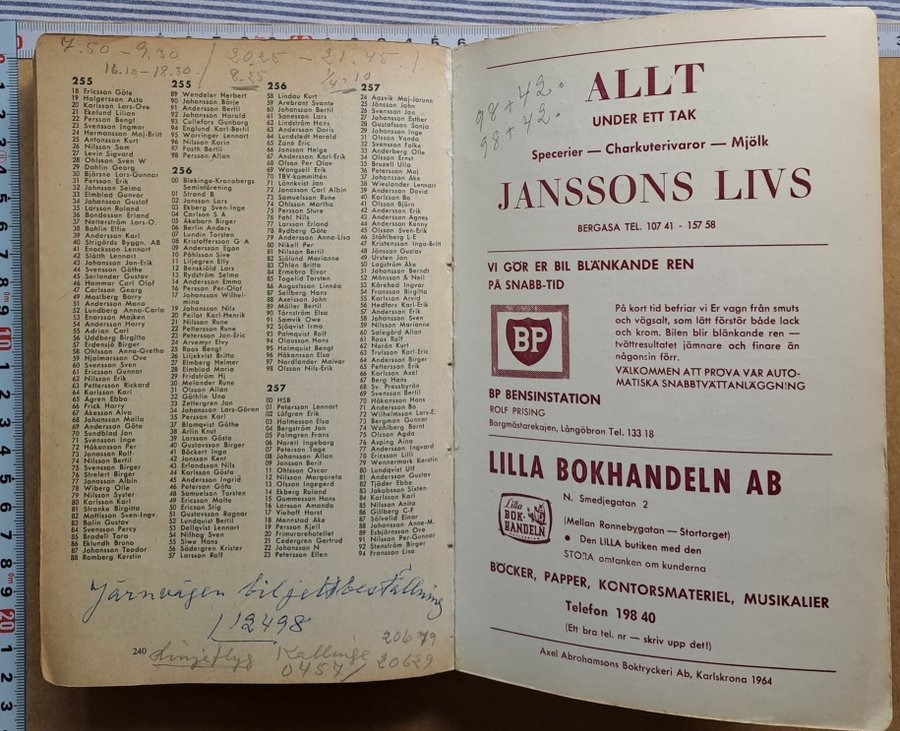 7.50 - 9.30 / 20.25 - 21.45 /
16.10 - 18.30 / 8.25
255
18 Ericsson Göte
19 Holgersson Asta
20 Karlsson Lars-Ove
21 Ekelund Lilian
22 Persson Bengt
23 Svensson Ingmar
24 Hermansson Maj-Britt
25 Antonsson Kurt
26 Nilsson Sam
27 Levin Sigvard
28 Ohlsson Sven W
29 Dahlin Georg
30 Björsne Lars-Gunnar
31 Persson Erik
32 Johnsson Selma
33 Elmblad Gurvor
34 Johansson Gustaf
35 Larsson Roland
36 Bondesson Erland
37 Netterström Lars-O.
38 Bohlin Elfie
39 Andersson Karl
40 Strigårds Byggn. AB
41 Enocksson Lennart
42 Slätth Lennart
43 Johansson Jan-Erik
44 Svensson Göthe
45 Serlander Gustav
46 Hammar Carl Olof
47 Carlsson Georg
49 Mostberg Barry
51 Andersson Mona
52 Lundberg Anna-Carla
53 Enarsson Majken
54 Andersson Harry
55 Adrian Carl
56 Uddberg Birgitta
57 Erdenhjä Birger
58 Ohlsson Anna-Gretha
59 Hjalmarsson Ove
60 Svensson Sven
61 Ericsson Gunnar
62 Nilsson Erik
63 Pettersson Rickard
64 Karlsson Karl
65 Agren Ebba
66 Frick Harry
67 Åkesson Alva
68 Johansson Malla
69 Andersson Göta
70 Sundblad Jan
71 Svensson Inge
72 Håkansson Per
73 Jonasson Rolf
74 Nilsson Bertil
75 Svensson Birger
76 Strelert Birger
77 Jonasson Albin
78 Wiberg Olle
79 Nilsson Syster
80 Karlsson Karl
81 Stranke Birgitta
82 Mattisson Sven-Ingv.
83 Bolin Gustav
84 Svensson Percy
85 Bradell Tora
86 Eklundh Bruno
87 Johansson Teodor
88 Romberg Kerstin
255
89 Wendeler Herbert
90 Johansson Börje
91 Andersson Bertil
92 Johansson Harald
93 Cullefors Gunborg
94 Englund Karl-Bertil
95 Warringer Lennart
96 Nilsson Karin
97 Fosth Bertil
98 Persson Allan
256
00 Blekinge-Kronobergs
Seminförening
01 Strand B
02 Jansson Lars
03 Ekberg Sven-Inge
04 Carlson S A
05 Åkebarn Birger
06 Berlin Anders
07 Lundin Torsten
08 Kristoffersson G A
09 Andersson Egon
10 Påhlsson Sive
11 Liljegren Elly
12 Bensköld Lars
13 Rydström Selma
14 Andersson Emma
16 Persson Per-Olof
17 Johansson Wilhelmina
19 Johansson Nils
20 Peilot Karl-Henrik
21 Nilsson Rune
22 Pettersson Rune
23 Petersson Jan-Eric
24 Arvemyr Elvy
25 Roos Bengt
26 Liljekvist Britta
27 Elmberg Helmer
28 Elmblad Maria
29 Fridström Hj
30 Melander Rune
31 Olsson Allan
32 Göthlin Uno
33 Zettergren Jan
34 Johansson Lars-Göran
35 Persson Karl
37 Blomqvist Göthe
38 Ärlin Knut
39 Larsson Gösta
40 Gustavsson Birger
41 Böckert Inga
42 Jonsson Kent
43 Erlandsson Nils
44 Karlsson Karl
45 Andersson Ingrid
46 Peterson Göta
48 Samuelsson Torsten
49 Ericsson Malle
50 Ericson Stig
51 Gustavsson Ragnar
52 Lundqvist Bertil
53 Dellqvist Lennart
54 Nilhag Sven
55 Siwe Hans
56 Södergren Krister
57 Larsson Rolf
256
58 Lindau Kurt
59 Arebrant Svante
60 Johansson Bertil
61 Sanesson Lars
62 Lindström Hans
63 Andersson Doris
64 Lundstedt Harald
65 Zoné Eric
66 Jonsson Helge
67 Andersson Karl-Erik
68 Olson Per Olov
69 Wangsell Erik
70 TBV-kommittén
71 Lönnkvist Jan
72 Jonasson Carl Albin
73 Samuelsson Rune
74 Ohlsson Martha
75 Persson Sture
76 Pahl Nils
77 Larsson Erland
78 Rydberg Göte
79 Andersson Anna-Lisa
80 Nikell Per
81 Nilsson Bertil
82 Sjölund Marianne
83 Öhlén Britta
84 Ermebro Eivor
85 Tagelid Torsten
86 Augustsson Linnéa
87 Sellberg Hans
88 Axelsson John
89 Möller Bertil
90 Törnström Elsa
91 Samvik Owe
92 Sjöqvist Irma
93 Palmquist Rolf
94 Olausson Hans
95 Holmquist Bengt
96 Håkansson Elsa
97 Nordlander Maivor
98 Olsson Nils-Erik
257
00 HSB
01 Petersson Lennart
02 Löfgren Erik
03 Holmesson Elsa
04 Bergström Jan
05 Palmgren Frans
06 Norell Ingeborg
07 Peterson Tage
08 Johansson Allan
09 Jansson Berit
11 Ohlsson Oscar
12 Nilsson Margareta
13 Olsson Ingegerd
14 Ekberg Roland
15 Gummesson Hans
16 Larsson Amanda
17 Viehoff Horst
18 Mennstad Åke
19 Persson Kjell
20 Frimurarehotellet
21 Cedergren Gertrud
22 Johansson N
23 Petersson Ellen
257
24 Aasvik Maj-Jorunn
25 Jönsson John
26 Svensson Jan
27 Johansson Esther
28 Gustafsson Sonja
29 Johansson Inge
31 Olsson Vanda
32 Svensson Folke
33 Anderberg Olle
34 Olsson Ernst
35 Bruzell Ulla
36 Petersson Maj
37 Johansson Åke
38 Wieslander Lennart
39 Andersson David
40 Karlsson Bo
41 Olsson Björn
42 Andersson Erik
43 Andersson Agnes
44 Andersson Kenny
45 Olsson Sven-Erik
46 Ståhlberg L-E
47 Kristensson Inga-Britt
48 Jönsson Gustav
49 Ursten Jan
50 Legström Åke
51 Johansson Berndt
52 Månsson & Neil
53 Kårehed Ingvar
54 Fransson Birgitta
55 Karlsson Arvid
56 Hedfors Karl-Erik
57 Andersson Erik
58 Johansson Sven
59 Nilsson Marianne
60 Solegård Allan
61 Roos Ralf
62 Norén Kurt
63 Trulsson Karl-Eric
64 Andersson Birger
65 Pettersson Erik
66 Karlsson Axel
67 Berg Hans
68 Sv. Pressbyrån
69 Svensson Bertil
70 Håkansson Hans
71 Andersson Bo
72 Wilhelmsson Lars-E.
73 Bergman Gunnar
74 Wahlberg Bernt
75 Olsson Agda
76 Asping Aina
77 Andersson Ingvard
78 Ericsson Lilly
79 Wennemark Kerstin
80 Lundqvist Ulf
81 Andersson Gustav
82 Tjäder Ebbe
83 Jakobsson Sixten
84 Karlsson Karl
85 Nilsson Anita
86 Gillberg C-F
87 Sölvelid Einar
88 Johansson Anne-M.
89 Esbjörnsson Ove
91 Nilsson Per-Gunnar
92 Stenström Birger
94 Fransson Lisa
Järnvägen biljettbeställning
12498
240 Linjeflyg Kallinge 20679
0457/ 20629
98 + 42.
98 + 42.
ALLT
UNDER ETT TAK
Specerier — Charkuterivaror — Mjölk
JANSSONS LIVS
BERGASA TEL. 107 41 - 157 58
VI GÖR ER BIL BLÄNKANDE REN
PÅ SNABB-TID
BP
På kort tid befriar vi Er vagn från smuts
och vägsalt, som lätt förstör både lack
och krom. Bilen blir blänkande ren —
tvättresultatet jämnare och finare än
någonsin förr.
VÄLKOMMEN ATT PRÖVA VÅR AUTO-
MATISKA SNABBTVÄTTANLÄGGNING
BP BENSINSTATION
ROLF PRISING
Borgmästarekajen, Långöbron Tel. 133 18
LILLA BOKHANDELN AB
Lilla
BOK-
HANDELN
N. Smedjegatan 2
(Mellan Ronnebygatan — Stortorget)
• Den LILLA butiken med den
STORA omtanken om kunderna
BÖCKER, PAPPER, KONTORSMATERIEL, MUSIKALIER
Telefon 198 40
(Ett bra tel. nr — skriv upp det!)
Axel Abrahamsons Boktryckeri Ab, Karlskrona 1964